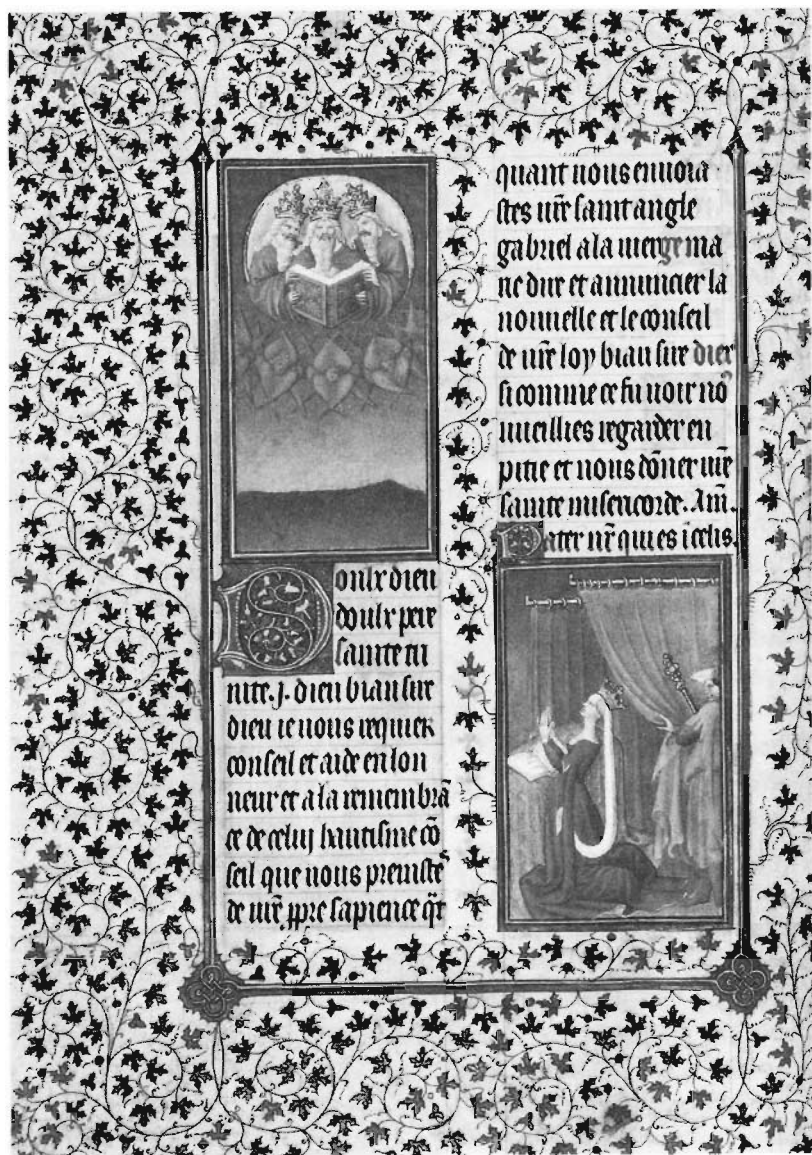 Doulx dieu
doulx pere
sainte tri
nite .j. dieu biau sire
dieu ie uous requier
conseil et aide en lon
neur et a la remembrã
ce de celuj hautisme cõ
seil que uous preniste⁹
de ur̃e ꝓpre sapience qñt
quant uous enuoia
stes ur̃e saint angle
gabriel a la uierge ma
rie dire et annuncier la
nouuelle et le conseil
de ur̃e loy biau sire dieu
si comme ce fu uoir nõ
uueillies regarder en
pitie et nous dõner ur̃e
sainte misericorde. Am̃.
Pater nr̃ qui es ĩ celis.